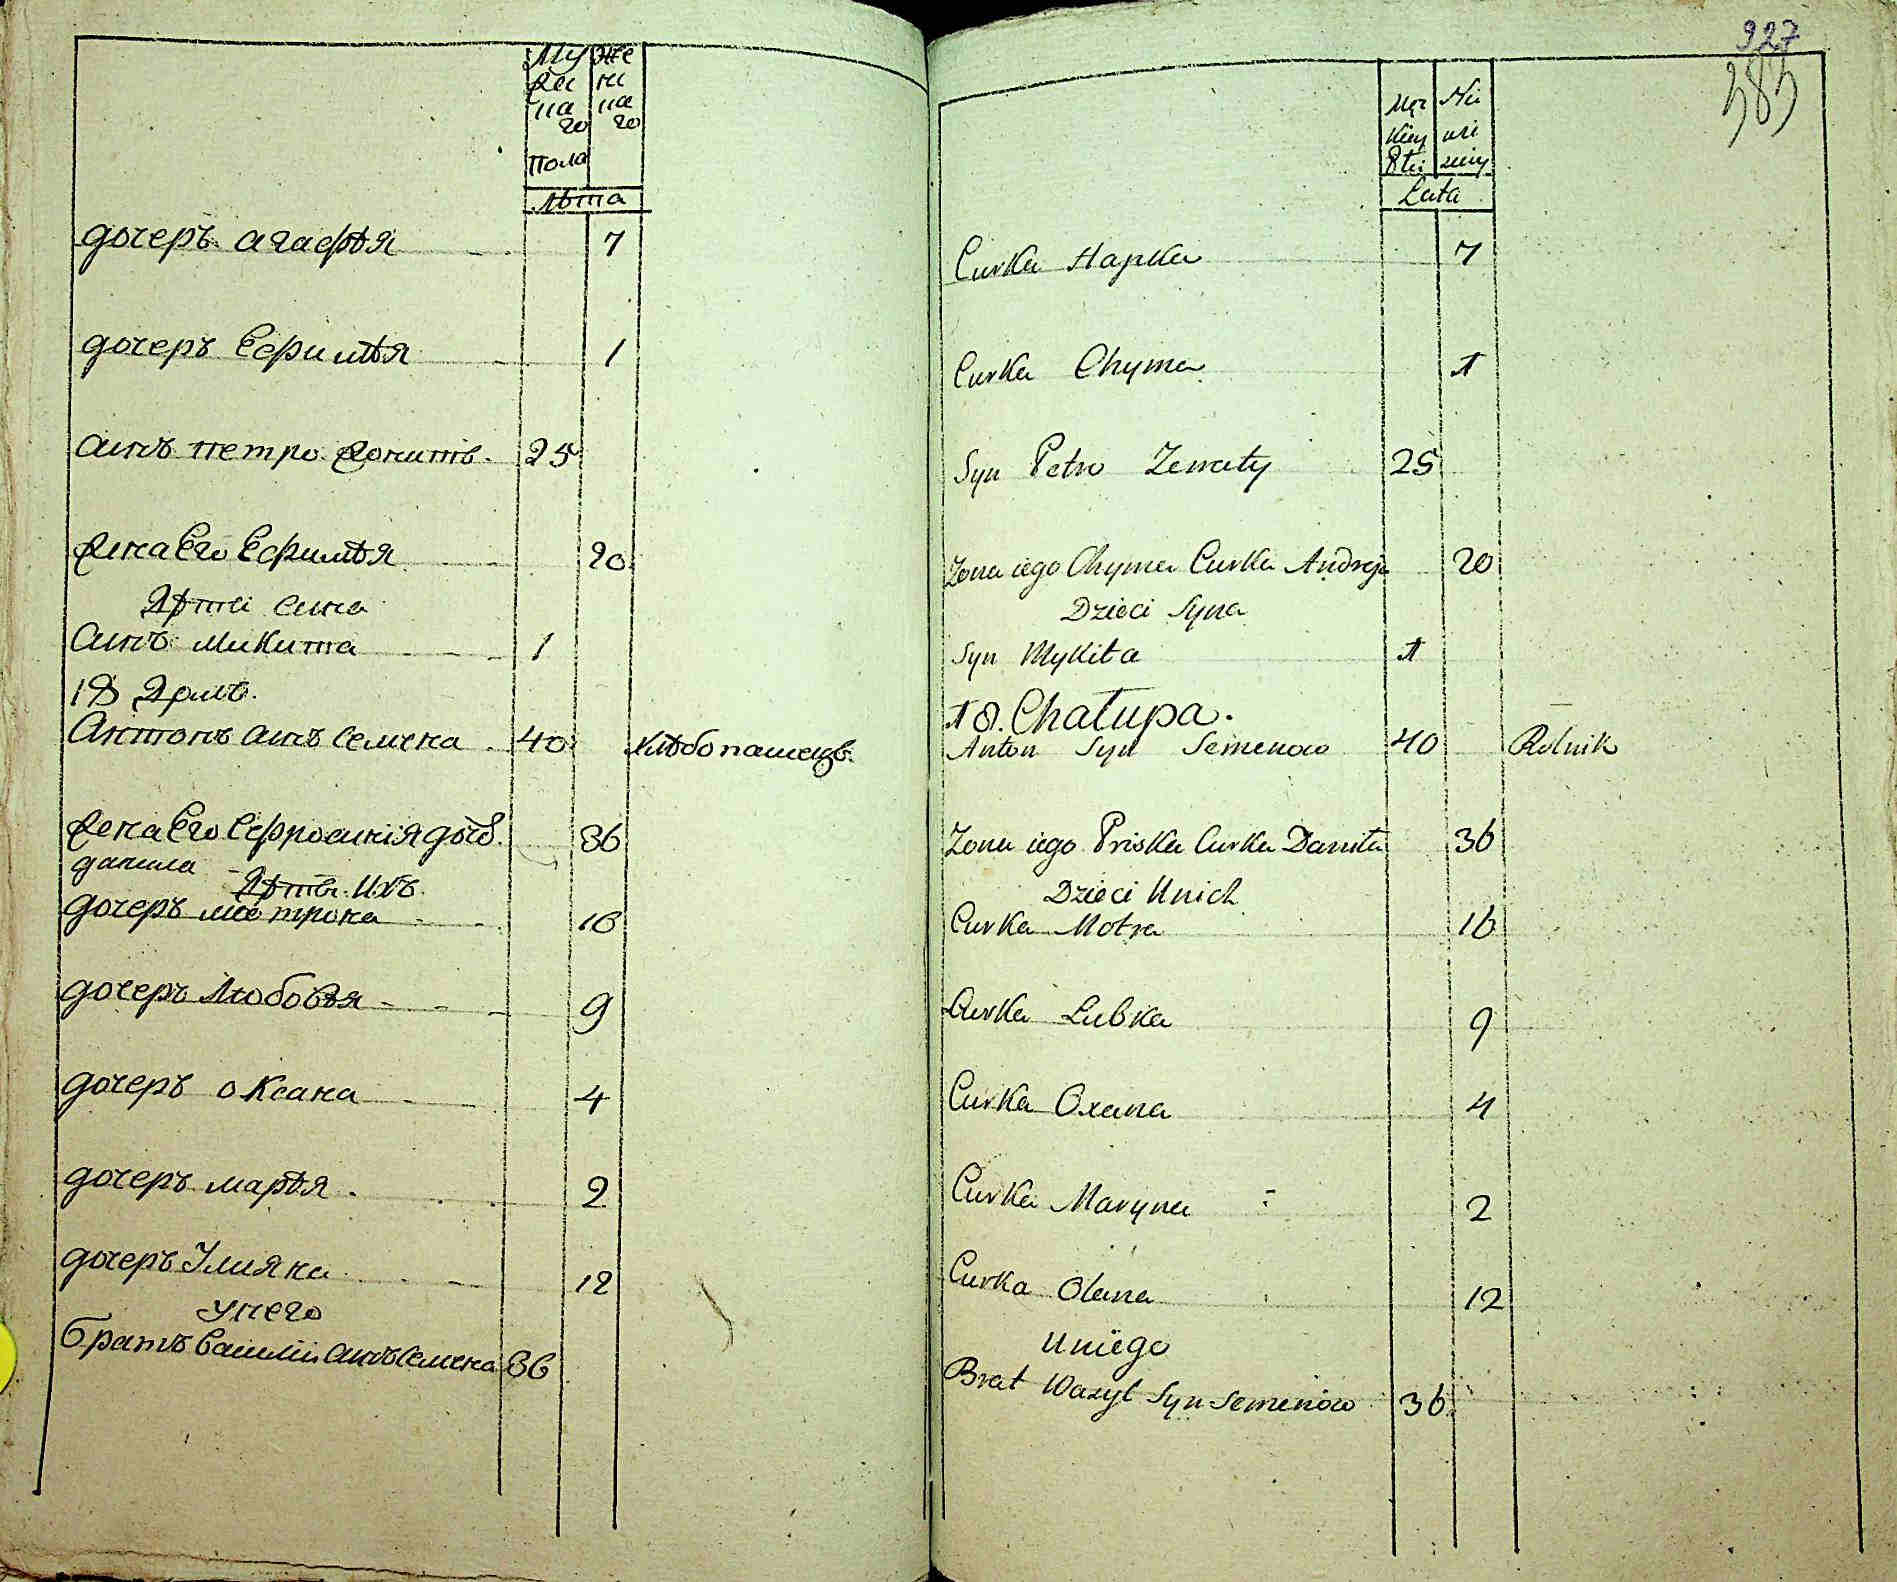 Му
жес
ка
го
Же
нс
ка
го
Пола
лѣта
дочеръ агафѣя 7
дочеръ Ефимѣя 1
синъ петро жонатъ 25
жена Его Ефимѣя 20
Дѣти сина
синъ микита 1
18 Домъ.
Антонъ синъ Семена 40 хлѣбопашецъ
жена Его Ефросинія доч. 36
данила
Дѣти ихъ
дочеръ мотрона 16
дочеръ любовѣя 9
дочеръ оксана 4
дочеръ марѣя 2
дочеръ Улияна 12
унего
братъ василій синъ Семена 36
927
Lata
Curka Hapka 7
Curka Chyma 1
Syn Petro Zenaty 25
Zona iego Chyma Curka Andreja 20
Dzieci Syna
Syn Mykita 1
18. Chałupa.
Anton Syn Semenow 40 Rolnik
Zona iego Priska Curka Daniła 36
Dzieci Unich
Curka Motra 16
Curka Lubka 9
Curka Oxana 4
Curka Maryna 2
Curka Olana 12
Uniego
Brat Wasyl Syn Semenow 36